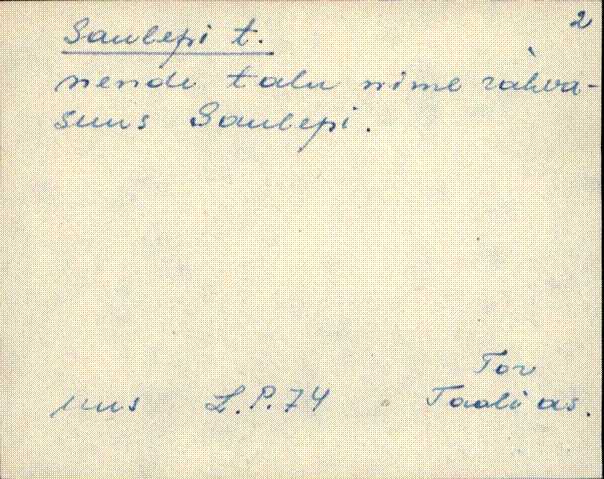 2
Saulepi t.
nende talu nime rahva-
suus Saulepi.
Tor
uus L.P.74 Taali as.